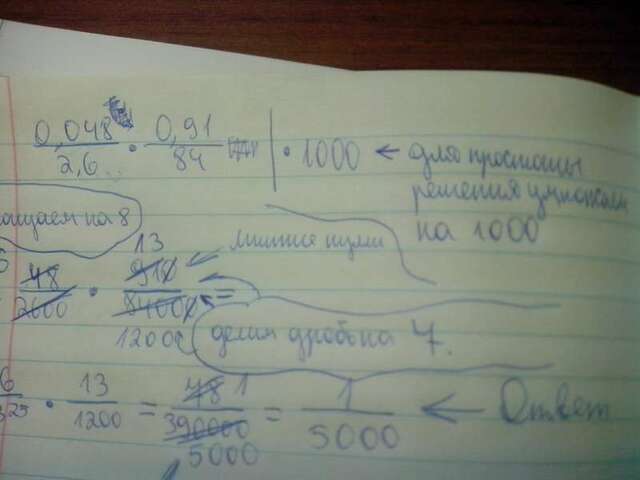 0,048/2,6 · 0,91/84 | · 1000 ← для простоты
решения умножаем
на 1000
ращаем на 8
13
48/2600 · 910/84000 = лишние нули
1200
делим дробь на 7.
6/325 · 13/1200 = 48/390000 = 1/5000 ← Ответ
1
5000